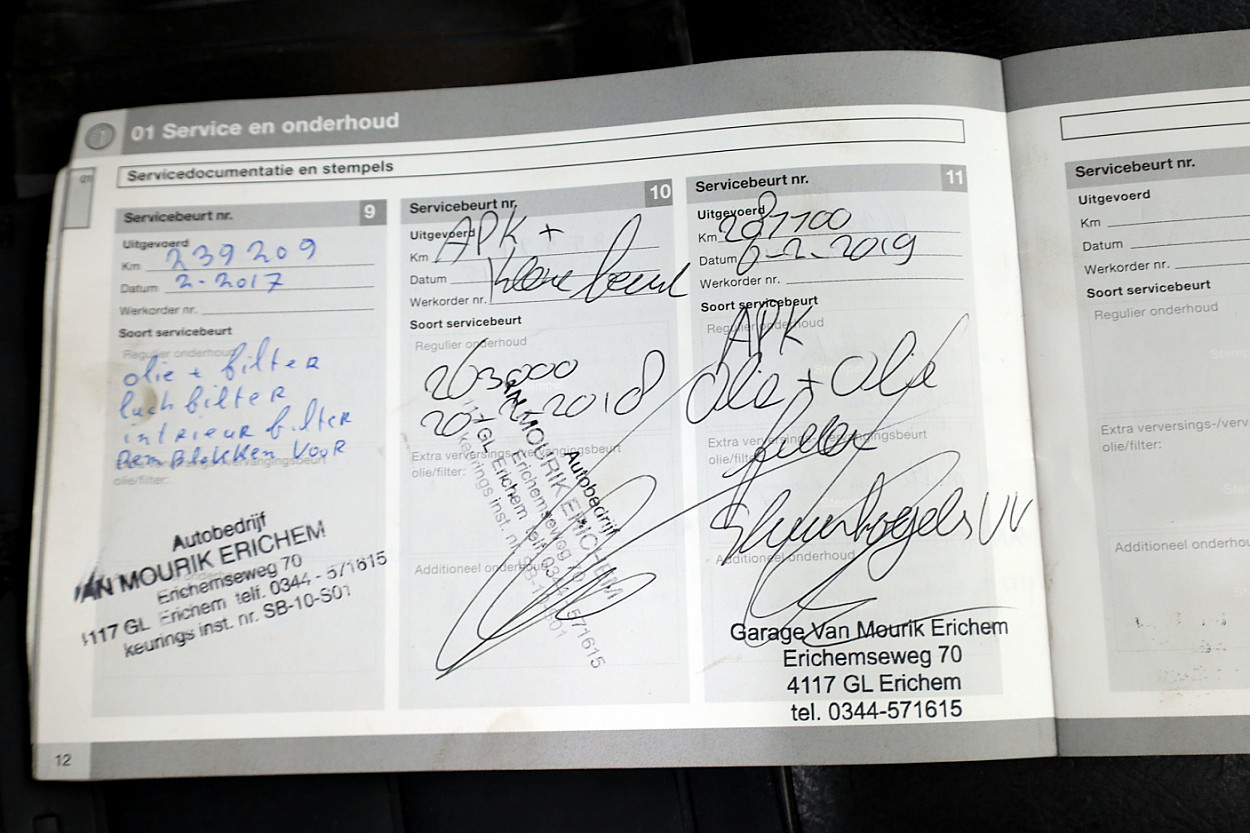 01 Service en onderhoud
01
Servicedocumentatie en stempels
Servicebeurt nr. 9
Uitgevoerd
Km 239209
Datum 2-2017
Werkorder nr.
Soort servicebeurt
Regulier onderhoud
olie + filter
luchfilter
intrieur filter
Remblokken voor
Extra verversings-/vervangingsbeurt
olie/filter:
Autobedrijf
VAN MOURIK ERICHEM
Erichemseweg 70
4117 GL Erichem telf. 0344 - 571615
keurings inst. nr. SB-10-S01
Servicebeurt nr. 10
Uitgevoerd
APK +
Km
Datum
kleine beurt
Werkorder nr.
Soort servicebeurt
Regulier onderhoud
263000
20-2-2018
Extra verversings-/vervangingsbeurt
olie/filter:
Additioneel onderhoud
Autobedrijf
VAN MOURIK ERICHEM
Erichemseweg 70
4117 GL Erichem telf. 0344 - 571615
keurings inst. nr. SB-10-S01
Servicebeurt nr. 11
Uitgevoerd
Km 287100
Datum 6-2-2019
Werkorder nr.
Soort servicebeurt
Regulier onderhoud
APK
Olie + Olie
filter
Extra verversings-/vervangingsbeurt
olie/filter:
Stuurkogels VV
Additioneel onderhoud
Garage Van Mourik Erichem
Erichemseweg 70
4117 GL Erichem
tel. 0344-571615
12
Servicebeurt nr.
Uitgevoerd
Km
Datum
Werkorder nr.
Soort servicebeurt
Regulier onderhoud
Extra verversings-/verv
olie/filter:
Additioneel onderhou